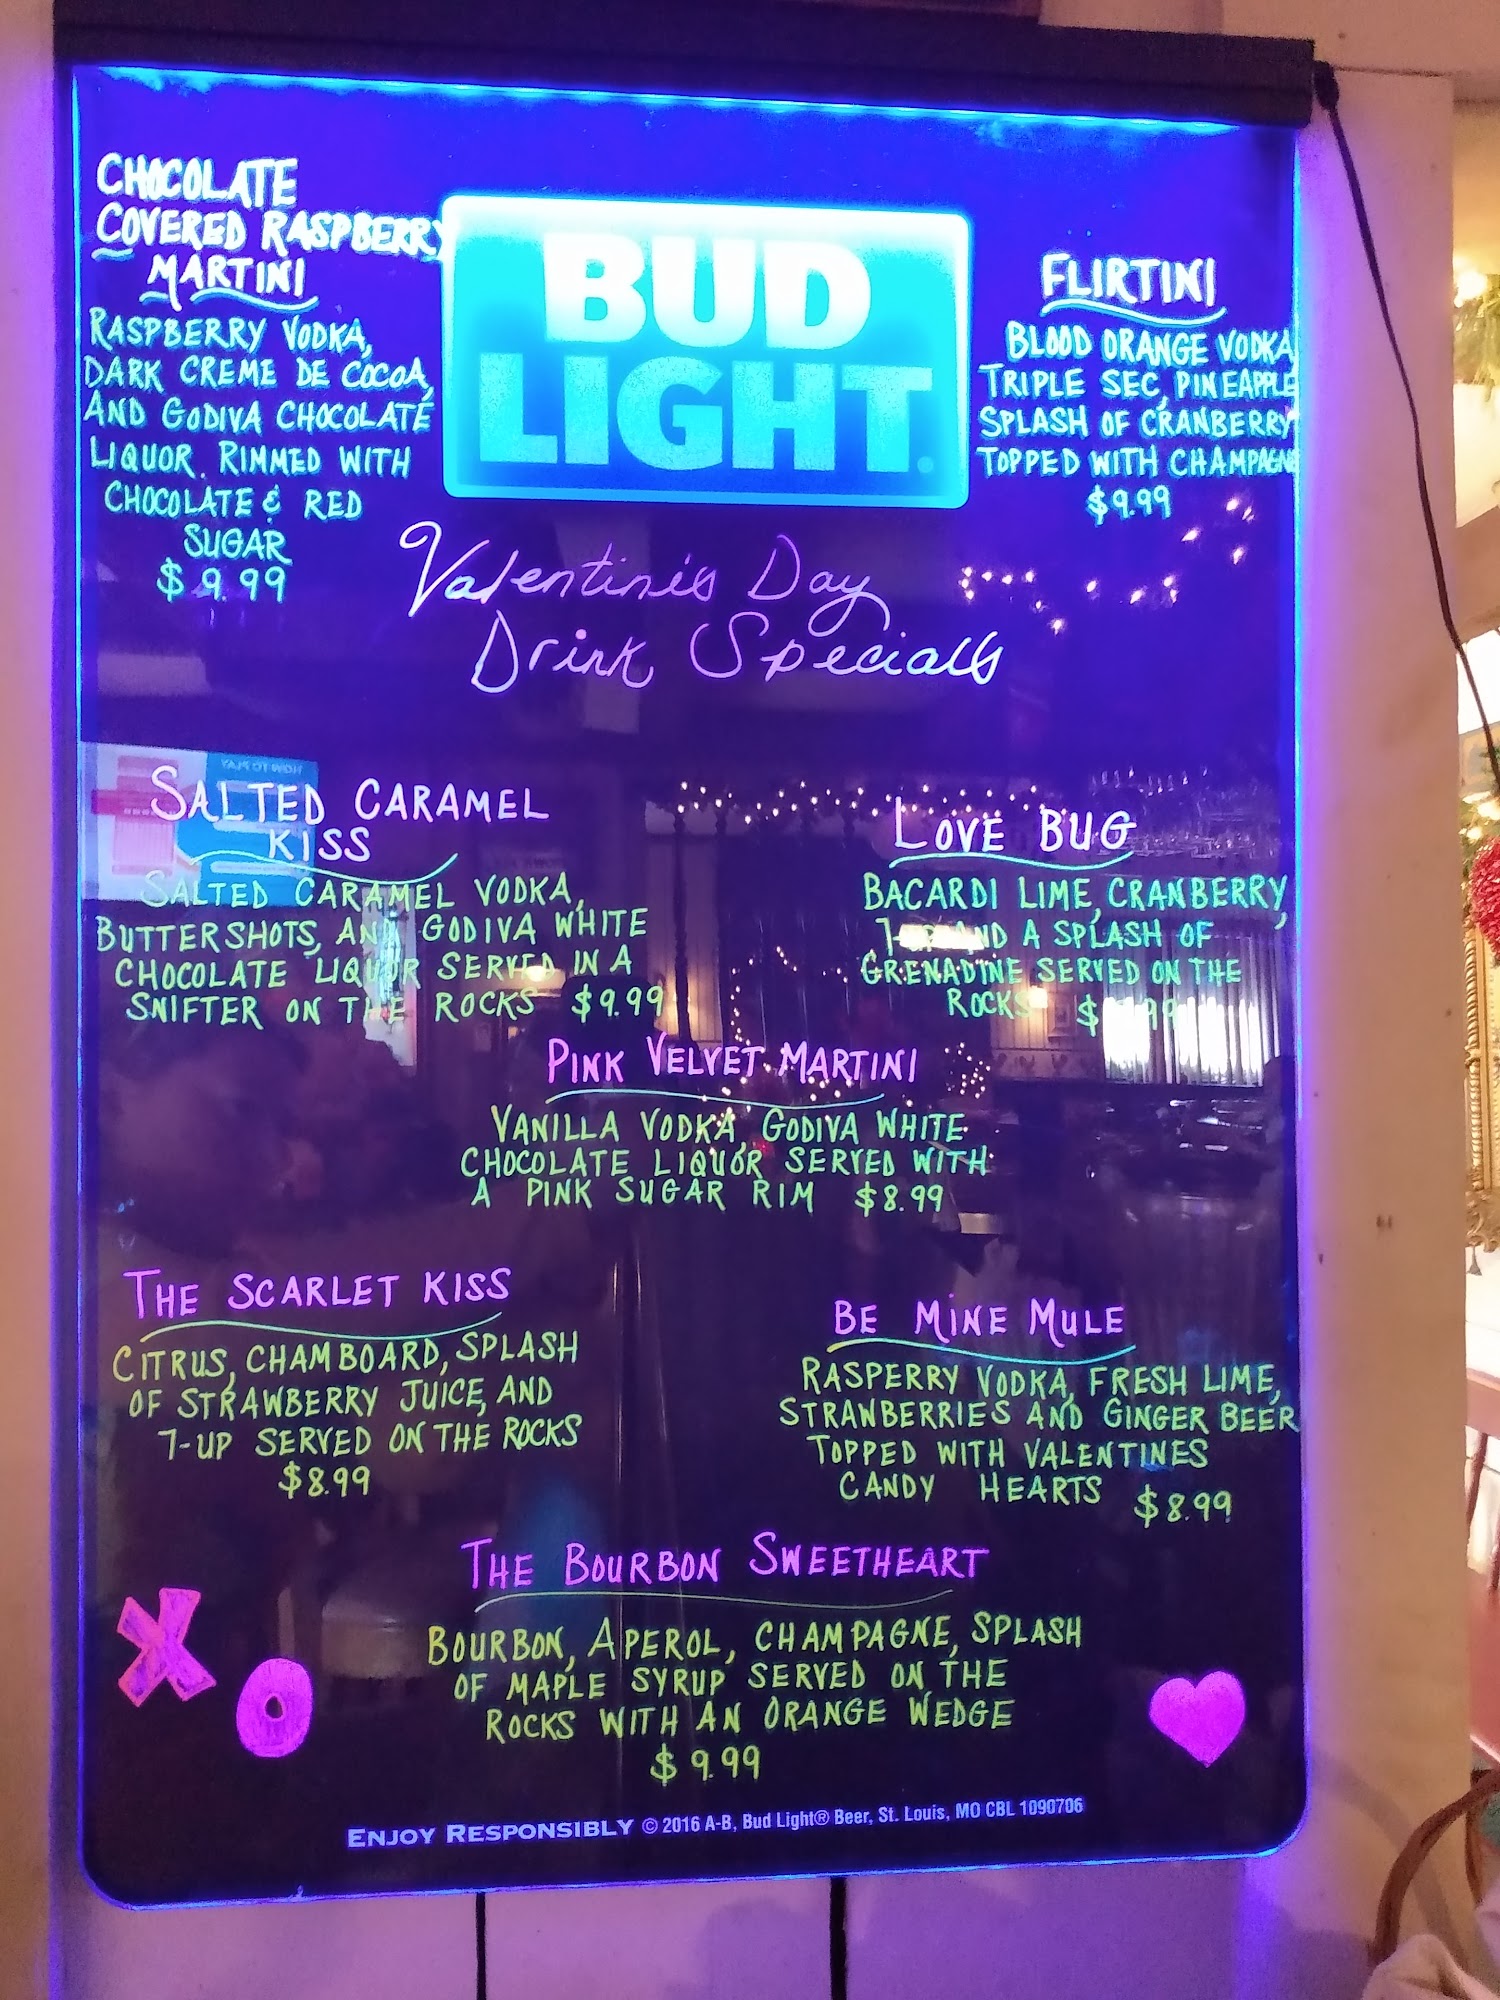 CHOCOLATE
COVERED RASPBERRY
MARTINI
RASPBERRY VODKA,
DARK CREME DE COCOA,
AND GODIVA CHOCOLATE
LIQUOR. RIMMED WITH
CHOCOLATE & RED
SUGAR
$9.99
BUD
LIGHT
FLIRTINI
BLOOD ORANGE VODKA
TRIPLE SEC, PINEAPPLE
SPLASH OF CRANBERRY
TOPPED WITH CHAMPAGNE
$9.99
Valentine's Day
Drink Specials
SALTED CARAMEL
KISS
SALTED CARAMEL VODKA,
BUTTERSHOTS, AND GODIVA WHITE
CHOCOLATE LIQUOR SERVED IN A
SNIFTER ON THE ROCKS $9.99
LOVE BUG
BACARDI LIME, CRANBERRY,
7-UP AND A SPLASH OF
GRENADINE SERVED ON THE
ROCKS
PINK VELVET MARTINI
VANILLA VODKA, GODIVA WHITE
CHOCOLATE LIQUOR SERVED WITH
A PINK SUGAR RIM $8.99
THE SCARLET KISS
CITRUS, CHAMBOARD, SPLASH
OF STRAWBERRY JUICE, AND
7-UP SERVED ON THE ROCKS
$8.99
BE MINE MULE
RASPERRY VODKA, FRESH LIME,
STRAWBERRIES AND GINGER BEER
TOPPED WITH VALENTINES
CANDY HEARTS $8.99
THE BOURBON SWEETHEART
BOURBON, APEROL, CHAMPAGNE, SPLASH
OF MAPLE SYRUP SERVED ON THE
ROCKS WITH AN ORANGE WEDGE
$9.99
XO
ENJOY RESPONSIBLY © 2016 A-B, Bud Light® Beer, St. Louis, MO CBL 1090706